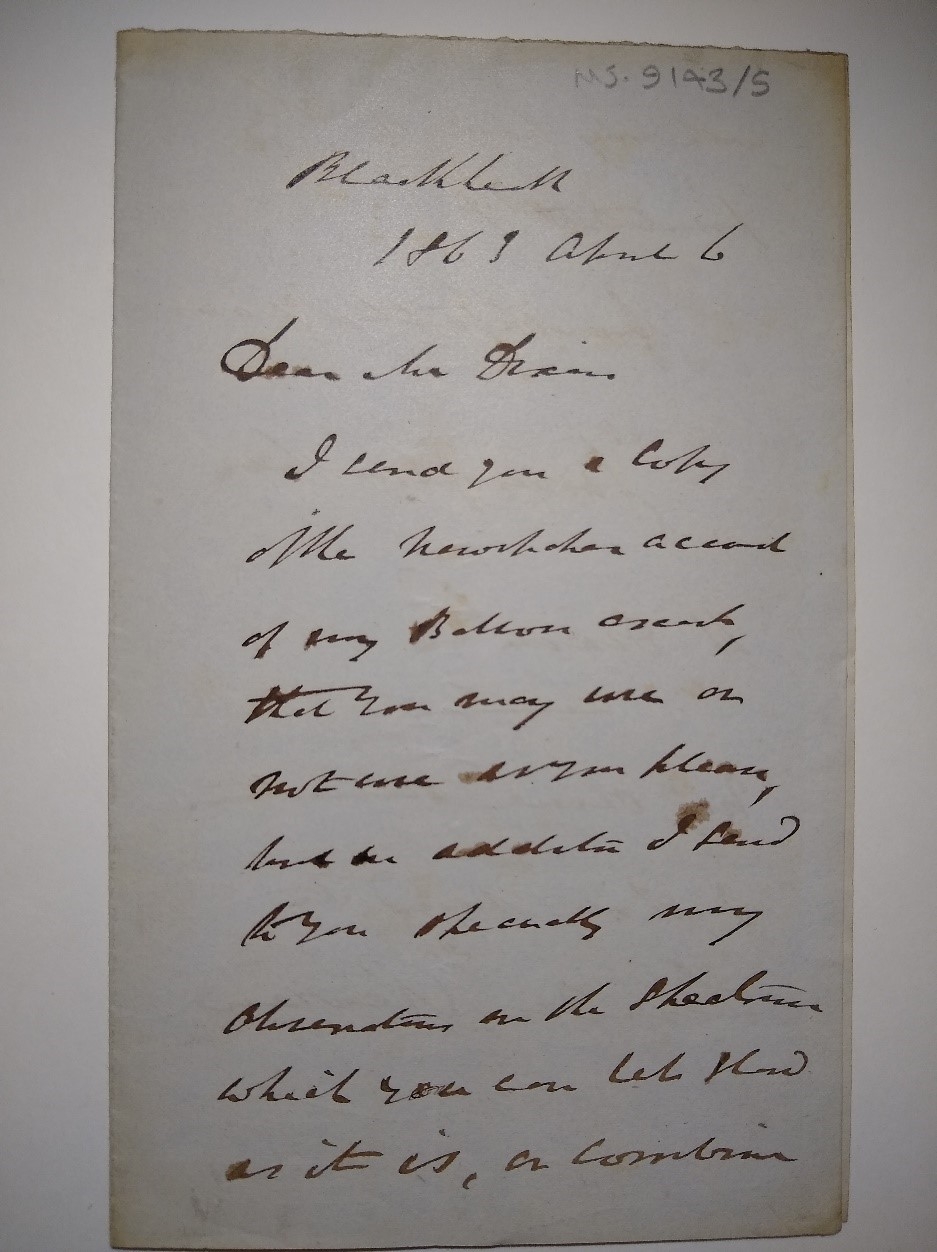 MS. 9143/5
Blackheath
1863 April 6
Dear Mr Dixon
I send you a Copy
of the Newspaper account
of my Balloon ascent,
that you may use or
not use as you please,
but in addition I send
to you specially my
Observations on the Spectrum
which you can let stand
as it is, or combine